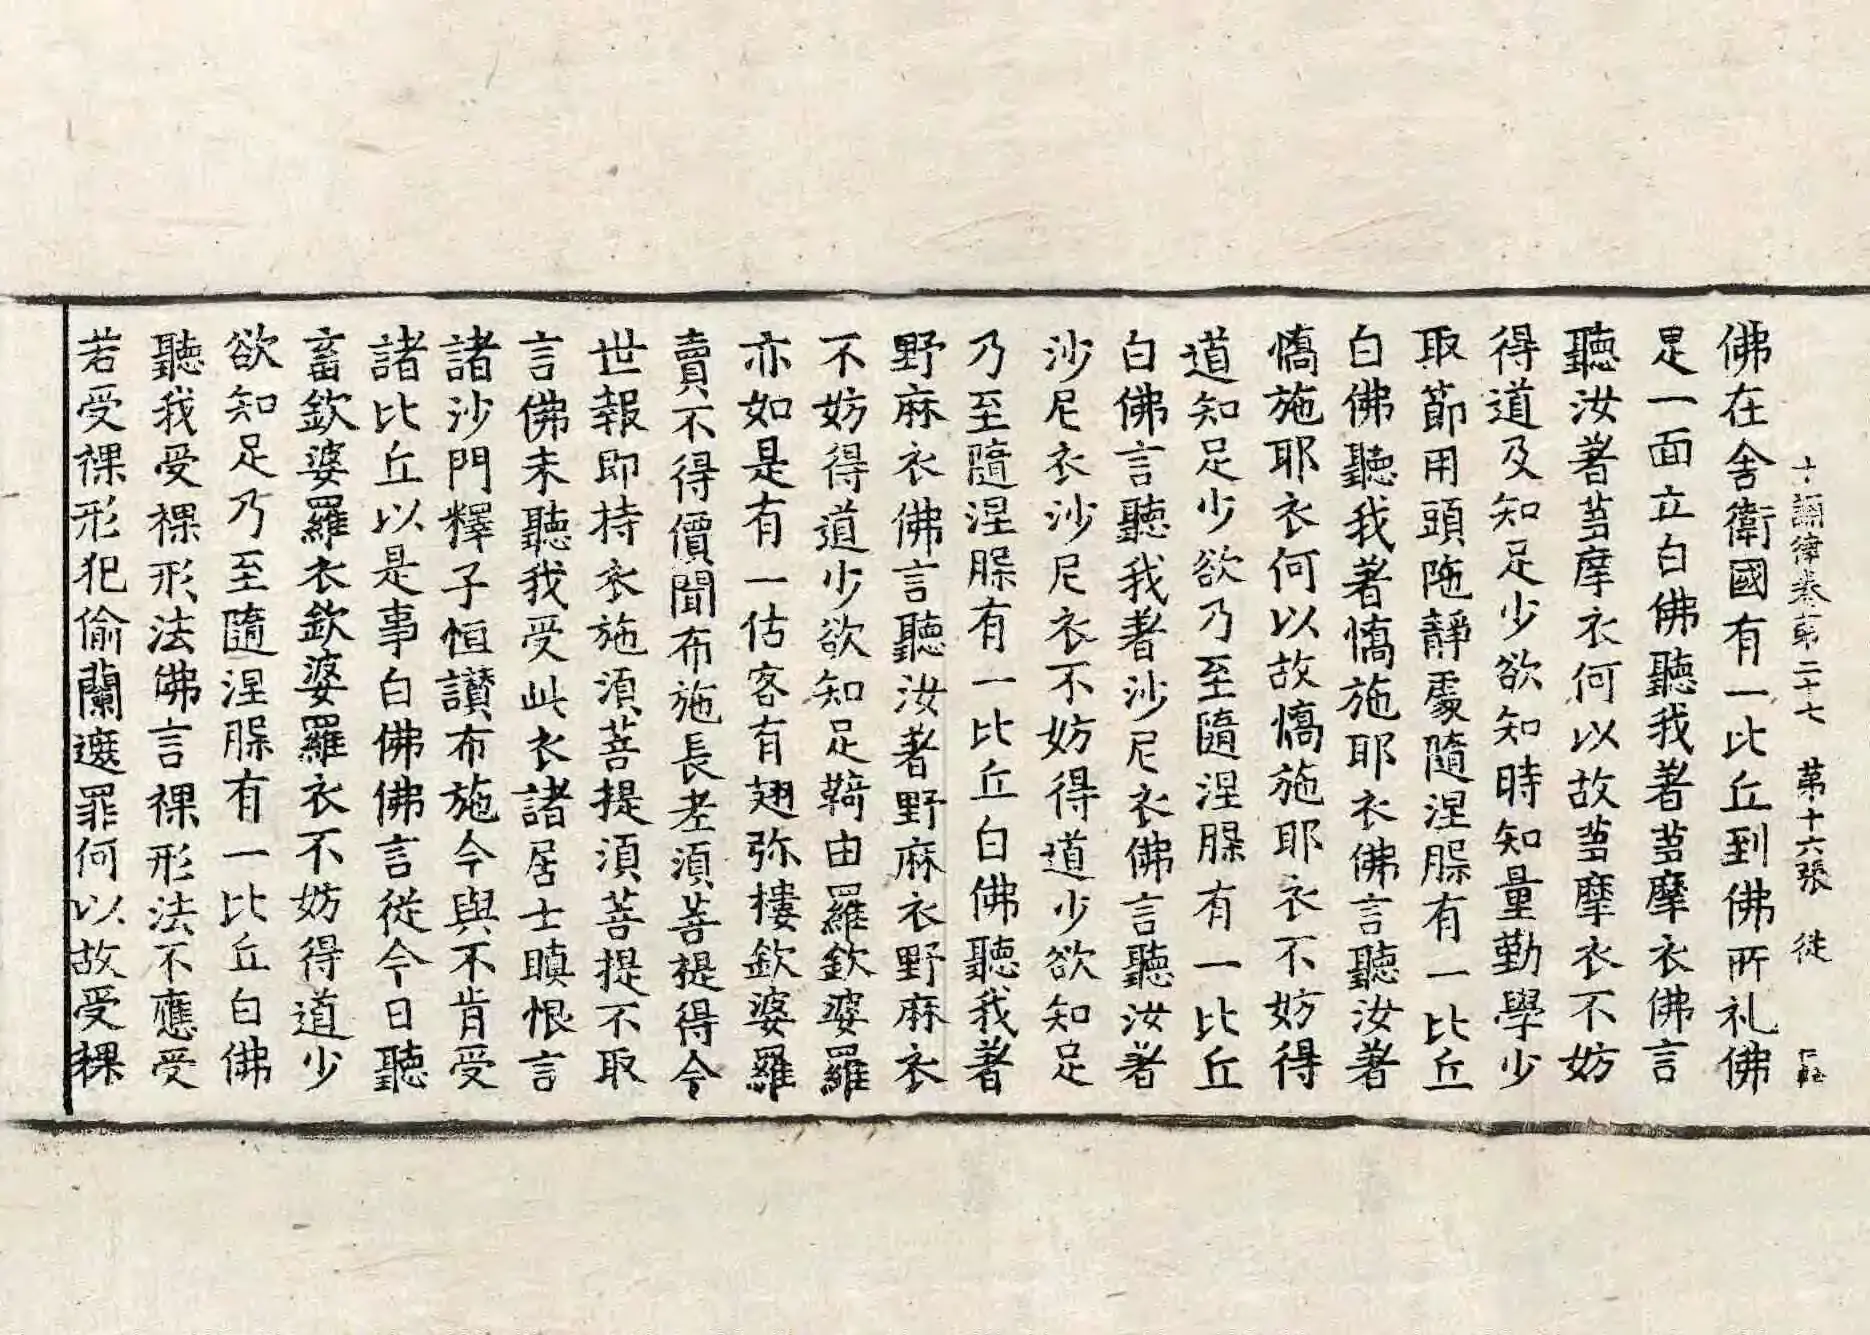 十誦律卷第二十七 第十六張 從
佛在舍衛國有一比丘到佛所礼佛
是一面立白佛聽我著芻摩衣佛言
聽汝著芻摩衣何以故芻摩衣不妨
得道及知足少欲知時知量勤學少
取節用頭陁靜處隨涅脲有一比丘
白佛聽我著憍施耶衣佛言聽汝著
憍施耶衣何以故憍施耶衣不妨得
道知足少欲乃至隨涅脲有一比丘
白佛言聽我著沙尼衣佛言聽汝著
沙尼衣沙尼衣不妨得道少欲知足
乃至隨涅脲有一比丘白佛聽我著
野麻衣佛言聽汝著野麻衣野麻衣
不妨得道少欲知足鞊由羅欽婆羅
亦如是有一估客有翅弥樓欽婆羅
賣不得價聞布施長老湏菩提得今
世報即持衣施湏菩提湏菩提不取
言佛未聽我受此衣諸居士瞋恨言
諸沙門釋子恒讃布施今與不肯受
諸比丘以是事白佛佛言從今日聽
畜欽婆羅衣欽婆羅衣不妨得道少
欲知足乃至隨涅脲有一比丘白佛
聽我受裸形法佛言裸形法不應受
若受裸形犯偷蘭遮罪何以故受裸